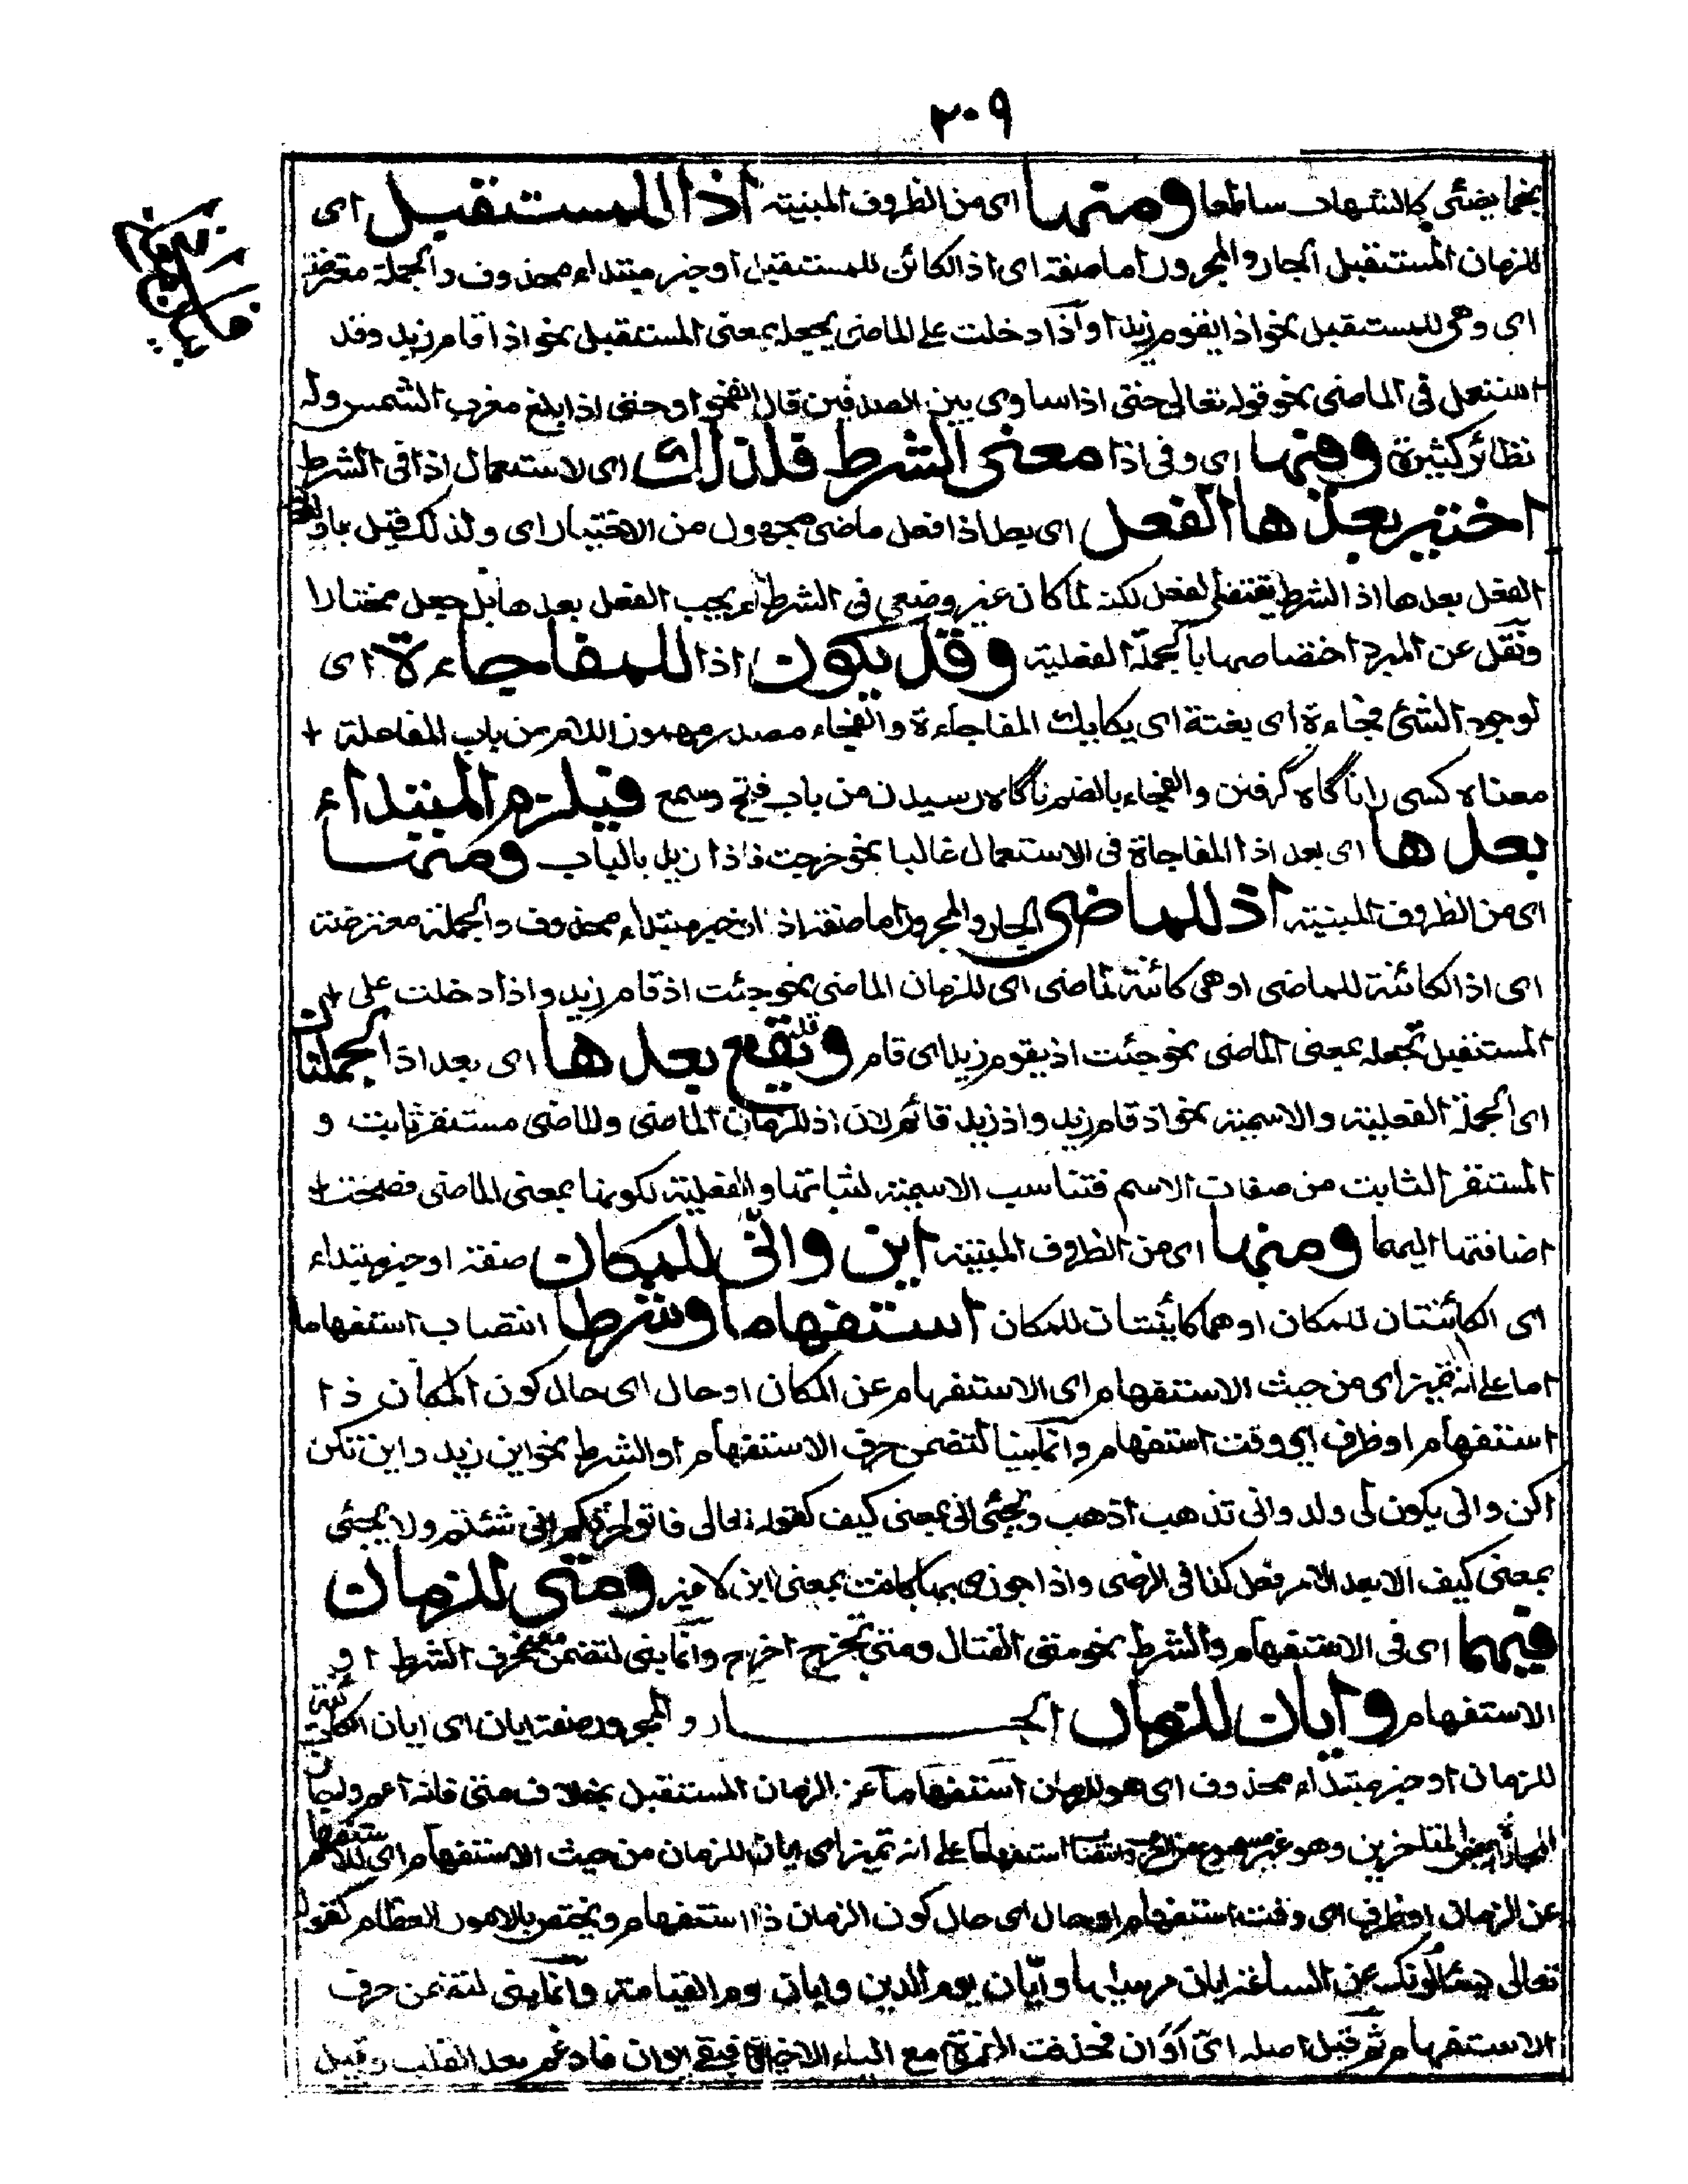 ٢٠٩
نجما يضئى كالشهاب ساطعا ومنها اى من الظروف المبنية اذا للمستقبل اى
للزمان المستقبل الجار والمجرور اما صفة اى اذا الكائن للمستقبل او خبر مبتداء محذوف والجملة معترضة
اى وهى للمستقبل نحو اذا يقوم زيد او اذا دخلت على الماضى يجعله بمعنى المستقبل نحو اذا قام زيد وقد
استعمل فى الماضى نحو قوله تعالى حتى اذا ساوى بين الصدفين قال انفخوا وحتى اذا بلغ مغرب الشمس وله
نظائر كثيرة وفيها اى وفى اذا معنى الشرط فلذلك اى لاستعمال اذا فى الشرط
اختير بعدها الفعل اى بعد اذا فعل ماضى مجهول من الاختيار اى ولذلك قيل
الفعل بعدها اذ الشرط يقتضى الفعل لكنه لما كان غير وضعى فى الشرط لم يجب الفعل بعدها بل جعل مختارا
ونقل عن المبرد اختصاصها بالجملة الفعلية وقد يكون اذا للمفاجاءة اى
لوجود الشئ فجاءة اى بغتة اى يكابيك المفاجاءة والفجاء مصدر مهموز اللام من باب المفاعلة
معناه كسى را ناگاه گرفتن والفجاء بالضم ناگاه رسيدن من باب فتح وسمع فيلزم المبتداء
بعدها اى بعد اذا المفاجاة فى الاستعمال غالبا نحو خرجت فاذا زيد بالباب ومنها
اى من الظروف المبنية اذ للماضى الجار والمجرور اما صفة اذ او خبر مبتداء محذوف والجملة معترضة
اى اذ الكائنة للماضى او هى كائنة لماضى اى للزمان الماضى نحو جئت اذ قام زيد واذا دخلت على
المستقبل تجعله بمعنى الماضى نحو جئت اذ يقوم زيد اى قام وتقع بعدها اى بعد اذ الجملتان
اى الجملة الفعلية والاسمية نحو اذ قام زيد واذ زيد قائم لان اذ للزمان الماضى والماضى مستقر ثابت و
المستقر الثابت من صفات الاسم فتناسب الاسمية لثباتها والفعلية لكونها بمعنى الماضى فصحت
اضافتها اليهما ومنها اى من الظروف المبنية اين وانّى للمكان صفة او خبر مبتداء
اى الكائنتان للمكان او هما كائنتان للمكان استفهاما وشرطا انتصاب استفهاما
اما على انه تميز اى من حيث الاستفهام اى الاستفهام عن المكان او حال اى حال كون المكان ذا
استفهام او ظرف اى وقت استفهام وانما بنيا لتضمن حرف الاستفهام او الشرط نحو اين زيد واين تكن
اكن وانى يكون لى ولد وانى تذهب اذهب ويجئى انى بمعنى كيف كقوله تعالى فاتوا حرثكم انى شئتم ولا يجئى
بمعنى كيف الا بعد الامر فعل كذا فى الرضى واذا جوزى بهما كانت بمعنى اين لا غير ومتى للزمان
فيهما اى فى الاستفهام والشرط نحو متى القتال ومتى تخرج اخرج وانما بنى لتضمن معنى حرف الشرط او
الاستفهام وايان للزمان الجار والمجرور صفة ايان اى ايان الكائنة
للزمان او خبر مبتداء محذوف اى هو للزمان استفهاما عن الزمان المستقبل بخلاف متى فانه اعم
المتاخرين وهو غير مسموع استفهاما على انه تميز اى ايان للزمان من حيث الاستفهام اى
عن الزمان او ظرف اى وقت استفهام او حال اى حال كون الزمان ذا استفهام ويختص بالامور العظام كقوله
تعالى يسئلونك عن الساعة ايان مرسيها وايّان يوم الدين وايان يوم القيامة وانما بنى لتضمن حرف
الاستفهام ثم قيل اصله اىّ اوان فحذفت الهمزة مع الياء الاخيرة فبقى ايوان فادغم بعد القلب وقيل